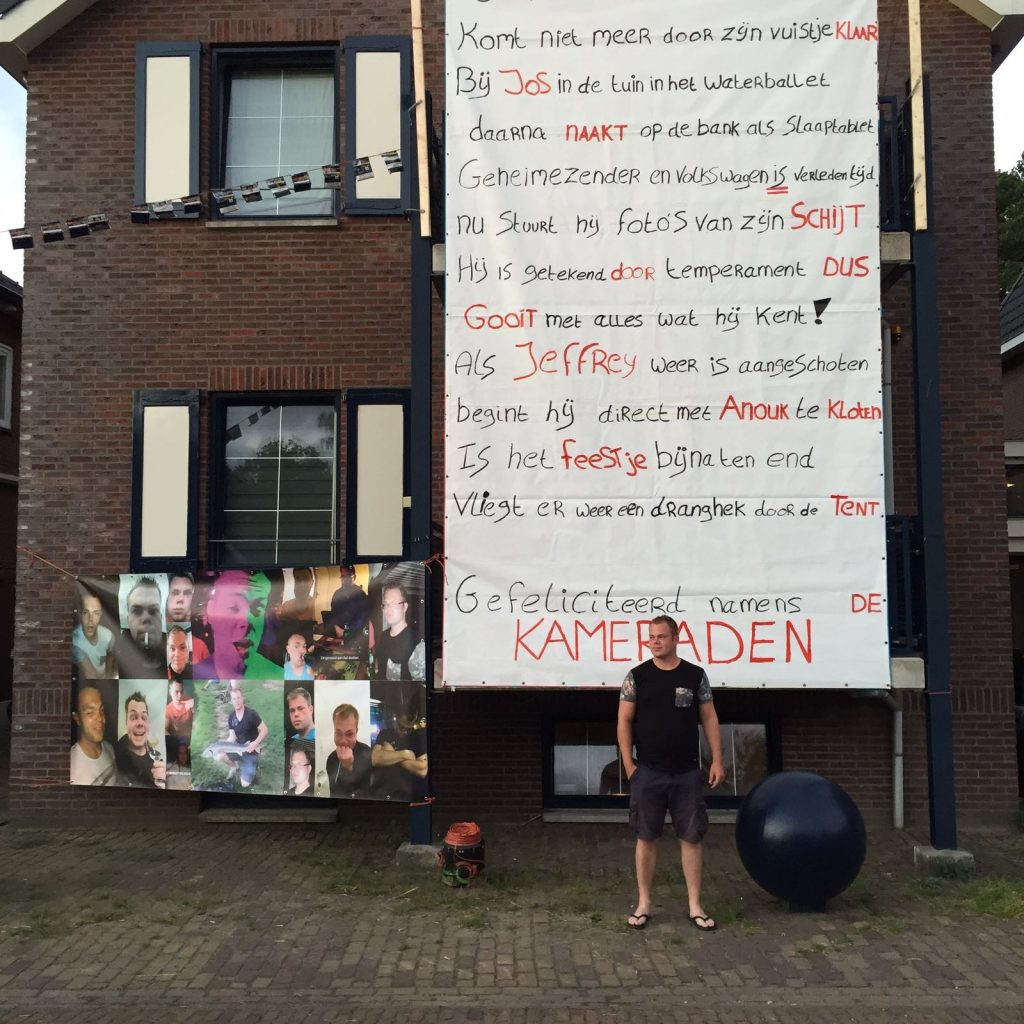 Komt niet meer door zijn vuistje KLAAR
Bij JOS in de tuin in het waterballet
daarna NAAKT op de bank als slaaptablet
Geheimezender en Volkswagen is verledentijd
nu stuurt hij foto's van zijn SCHIJT
Hij is getekend door temperament DUS
GOOIT met alles wat hij kent!
Als JEFFREY weer is aangeschoten
begint hij direct met ANOUK te KLOTEN
Is het feestje bijna ten end
Vliegt er weer een dranghek door de TENT
Gefeliciteerd namens DE
KAMERADEN